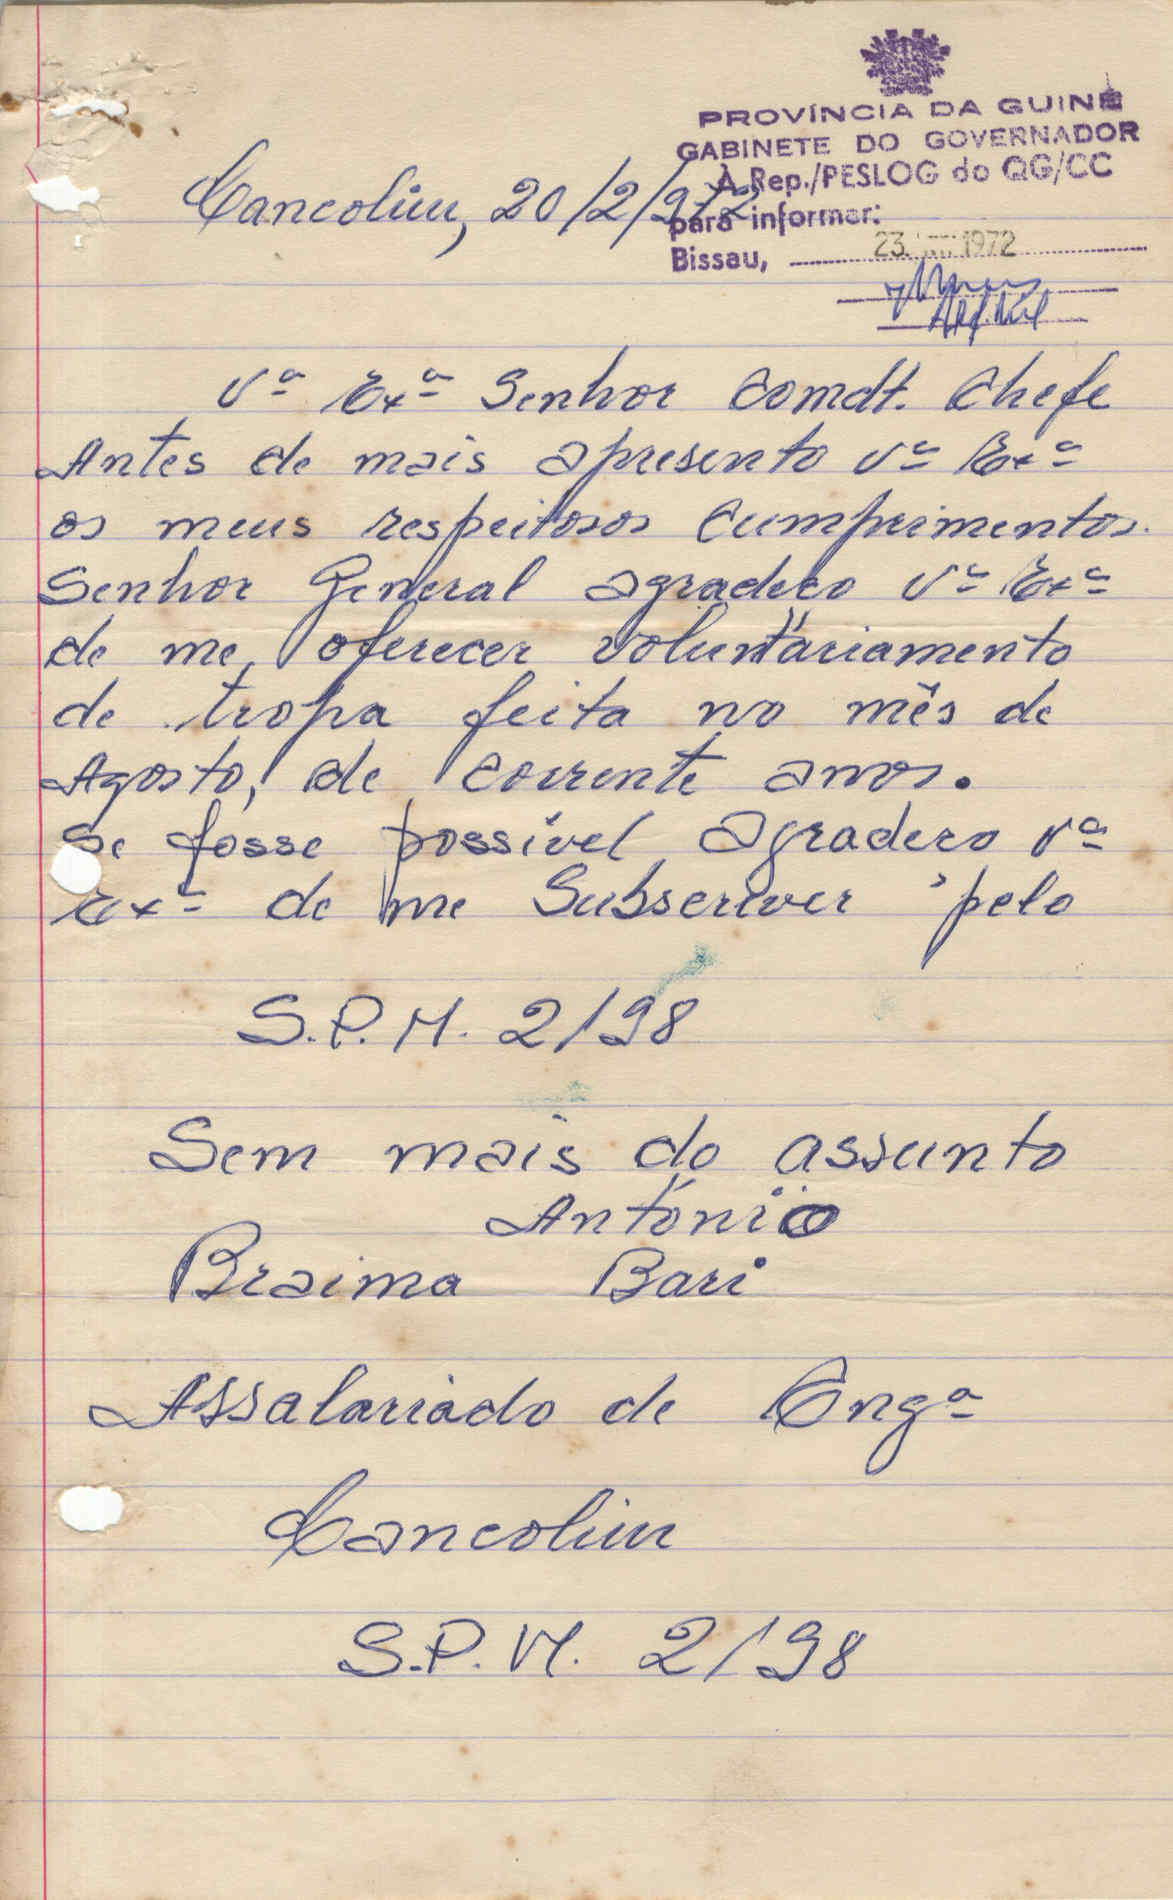 PROVÍNCIA DA GUINÉ
GABINETE DO GOVERNADOR
À Rep./PESLOG do QG/CC
para informar:
Bissau, 23. 1972
Cancolim, 20/2/972
Vª Exª Senhor Comdt. Chefe
Antes de mais apresento Vª Exª
os meus respeitosos cumprimentos.
Senhor General agradeco Vª Exª
de me oferecer voluntáriamento
de tropa feita no mês de
Agosto, de corrente anos.
Se fosse possível agradeco Vª
Exª de me Subscriver pelo
S.P.M. 2198
Sem mais do assunto
António
Braima Bari
Assalariado de Engª
Cancolim
S.P.M. 2198